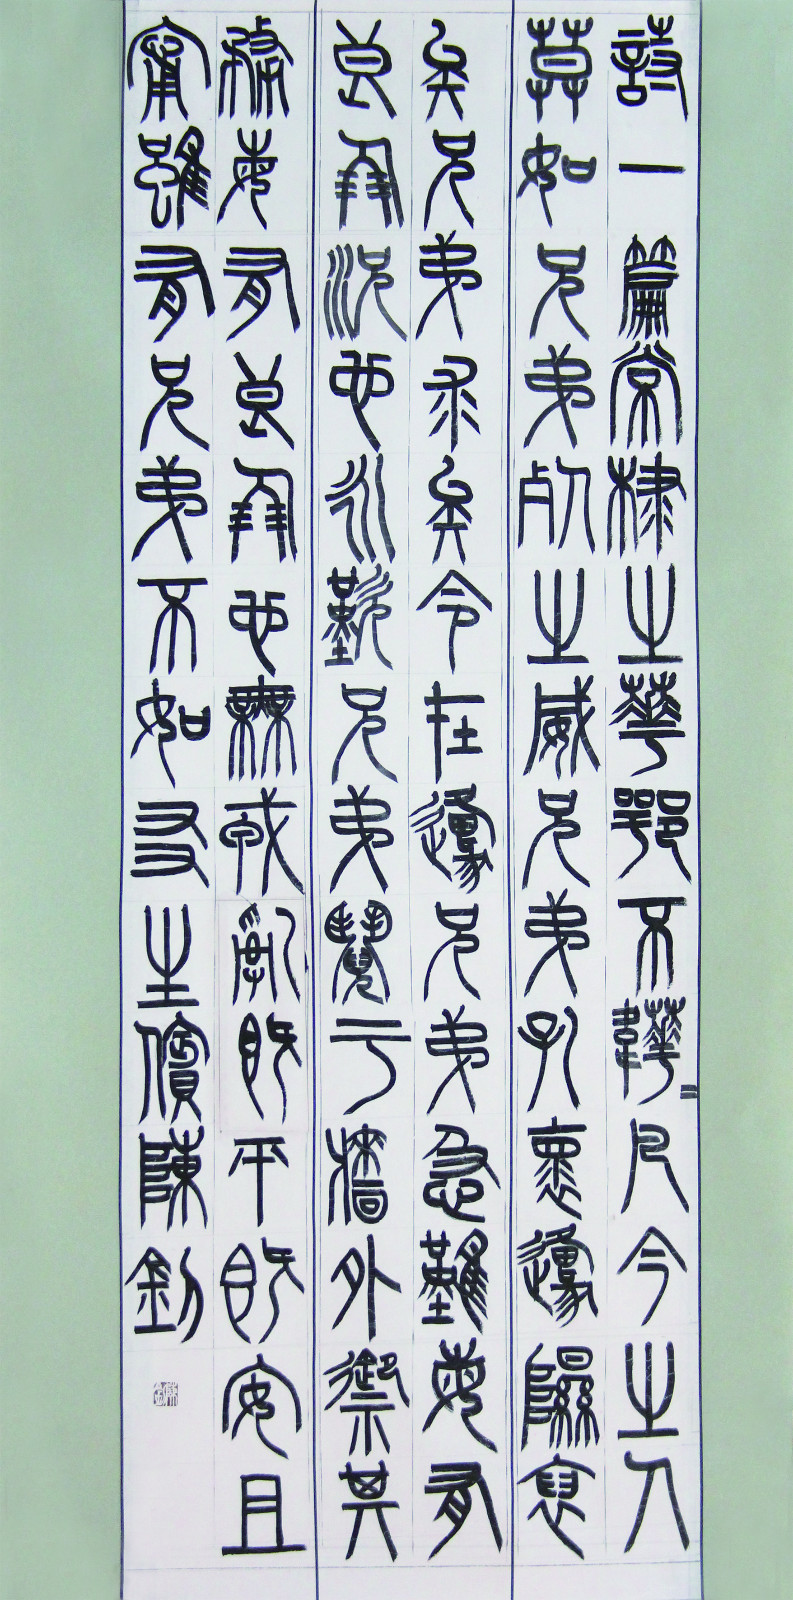 詩一篇常棣之華鄂不韡=凡今之人
莫如兄弟死之威兄弟孔褱邍隰裒
矣兄弟求矣令在邍兄弟急難每有
良朋況也永歎兄弟鬩亏牆外禦其
務每有良朋也無戎亂既平既安且
寧雖有兄弟不如友生儐陳釗